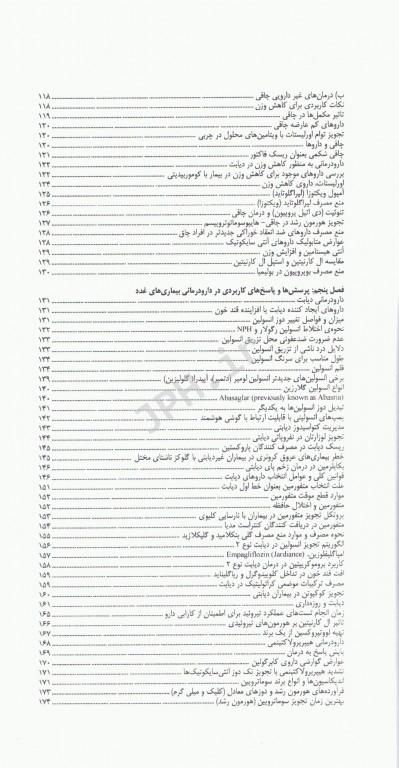 ب) درمان‌های غیر دارویی چاقی ۱۱۸
نکات کاربردی برای کاهش وزن ۱۱۸
تاثیر مکمل‌ها در چاقی ۱۱۹
داروهای کم عارضه چاقی ۱۲۰
تجویز توام اورلیستات با ویتامین‌های محلول در چربی ۱۲۰
چاقی و داروها ۱۲۰
چاقی شکمی بعنوان ریسک فاکتور ۱۲۱
دارودرمانی به منظور کاهش وزن در دیابت ۱۲۲
بررسی داروهای موجود برای کاهش وزن در بیمار با کوموربیدیتی ۱۲۲
اورلیستات، داروی کاهش وزن ۱۲۴
آمپول ویکتوزا (لیراگلوتاید) ۱۲۵
منع مصرف لیراگلوتاید (ویکتوزا) ۱۲۶
تنوئیت (دی اتیل پروپیون) و درمان چاقی ۱۲۶
تجویز هورمون رشد در چاقی- هایپوسوماتوتروپیسم ۱۲۷
منع مصرف داروهای ضد انعقاد خوراکی جدیدتر در افراد چاق ۱۲۸
عوارض متابولیک داروهای آنتی سایکوتیک ۱۲۸
آنتی هیستامین و افزایش وزن ۱۲۹
مقایسه ال کارنیتین و استیل ال کارنیتین ۱۲۹
منع مصرف بوپروپیون در بولیمیا ۱۳۰
فصل پنجم: پرسش‌ها و پاسخ‌های کاربردی در دارودرمانی بیماری‌های غدد
دارودرمانی دیابت ۱۳۱
داروهای ایجاد کننده دیابت یا افزاینده قند خون ۱۳۱
میزان و فواصل تغییر دوز انسولین ۱۳۱
نحوه‌ی اختلاط انسولین رگولار و NPH ۱۳۲
عدم ضرورت ضدعفونی محل تزریق انسولین ۱۳۳
دلایل درد ناشی از تزریق انسولین ۱۳۳
طول مناسب برای سرنگ انسولین ۱۳۴
قلم انسولین ۱۳۴
برخی انسولین‌های جدیدتر انسولین لومیر (دتمیر)، آپیدرا( گلولیزین) ۱۳۹
انواع انسولین گلارژین ۱۴۰
Abasaglar (previously known as Abasria) ۱۴۰
تبدیل دوز انسولین‌ها به یکدیگر ۱۴۱
پمپ‌های انسولینی با قابلیت ارتباط با گوشی هوشمند ۱۴۲
مدیریت کتواسیدوز دیابتی ۱۴۳
تجویز لوزارتان در نفروپاتی دیابتی ۱۴۴
ریسک دیابت در مصرف کنندگان پاروکستین ۱۴۵
خطر بیماری‌های عروق کرونری در بیماران غیردیابتی با گلوکز ناشتای مختل ۱۴۵
بکاپلرمین در درمان زخم پای دیابتی ۱۴۶
قوانین کلی و عوامل انتخاب داروهای دیابت ۱۴۶
علت انتخاب متفورمین بعنوان خط اول دیابت ۱۵۱
موارد قطع موقت متفورمین ۱۵۲
متفورمین و اختلال حافظه ۱۵۲
پروتکل تجویز متفورمین در بیماران با نارسایی کلیوی ۱۵۳
متفورمین در دریافت کنندگان کنتراست مدیا ۱۵۴
نحوه مصرف و موارد منع مصرف گلی بنکلامید و گلیکلازید ۱۵۵
الگوریتم تجویز انسولین در دیابت نوع ۲ ۱۵۶
امپاگلیفلوزین، Empagliflozin (Jardiance) ۱۵۷
کاربرد بروموکریپتین در درمان دیابت نوع ۲ ۱۵۸
افت قند خون در تداخل کلوپیدوگرل و رپاگلیناید ۱۵۹
مصرف ترکیبات موضعی کراتولیتیک در دیابت ۱۵۹
تجویز کوکیوتن در بیماران دیابتی ۱۶۰
دیابت و روزه‌داری ۱۶۱
زمان انجام تست‌های عملکرد تیروئید برای اطمینان از کارایی دارو ۱۶۵
تاثیر ال کارنیتین بر هورمون‌های تیروئیدی ۱۶۶
تهیه لووتیروکسین از یک برند ۱۶۷
دارودرمانی هیپرپرولاکتینمی ۱۶۸
پایش پاسخ به درمان ۱۶۹
عوارض گوارشی داروی کابرگولین ۱۷۰
تشدید هیپرپرولاکتینمی با تجویز تک دوز آنتی‌سایکوتیک‌ها ۱۷۱
اندیکاسیون‌ها و انواع برند سوماتروپین ۱۷۱
فرآورده‌های هورمون رشد و دوزهای معادل (کلیک و میلی گرم) ۱۷۳
بهترین زمان تجویز سوماتروپین (هورمون رشد) ۱۷۴